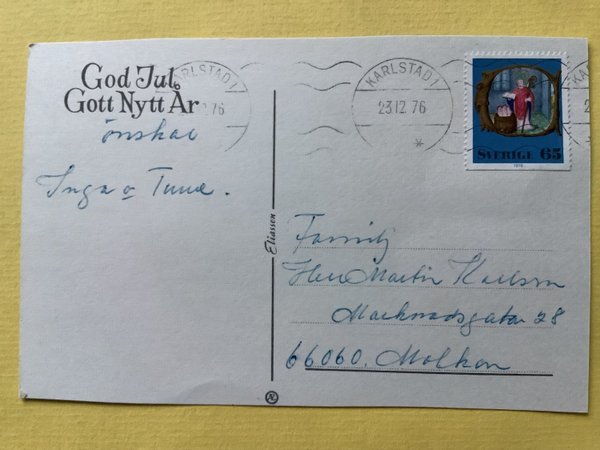 God Jul
Gott Nytt År
önskar
Inga o Tune.
KARLSTAD 1
23.12.76
KARLSTAD 1
23.12.76
KARLSTAD 1
SVERIGE 65
1976
Eliassen
Familj
Herr Martin Karlsson
Marknadsgatan 28
66060. Molkom